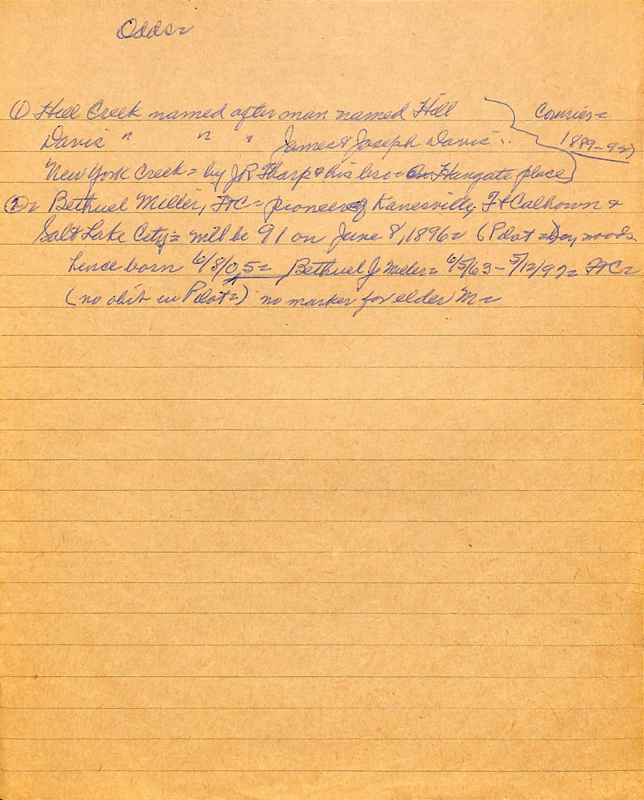 Odds=
① Hill Creek named after man named Hill
Courier=
Davis " " " James & Joseph Davis..
1889-92)
New York Creek= by J R Tharp & his bro= on Hungate place)
②= Bethuel Miller, Ft C= pioneer of Kanesville, Ft Calhoun &
Salt Lake City= will be 91 on June 8, 1896= (Pilot=
hence born 6/8/05= Bethuel J Miller= 6/5/63- 5/12/97= Ft C=
(no obit in Pilot=) no marker for elder M=